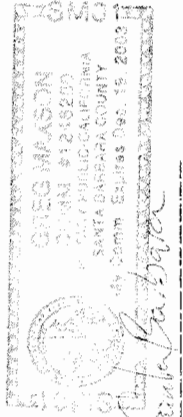 GREG MAASON
COMM. #1248200
NOTARY PUBLIC CALIFORNIA
SANTA BARBARA COUNTY
My Comm. Expires Dec. 19, 2003
Santa Barbara